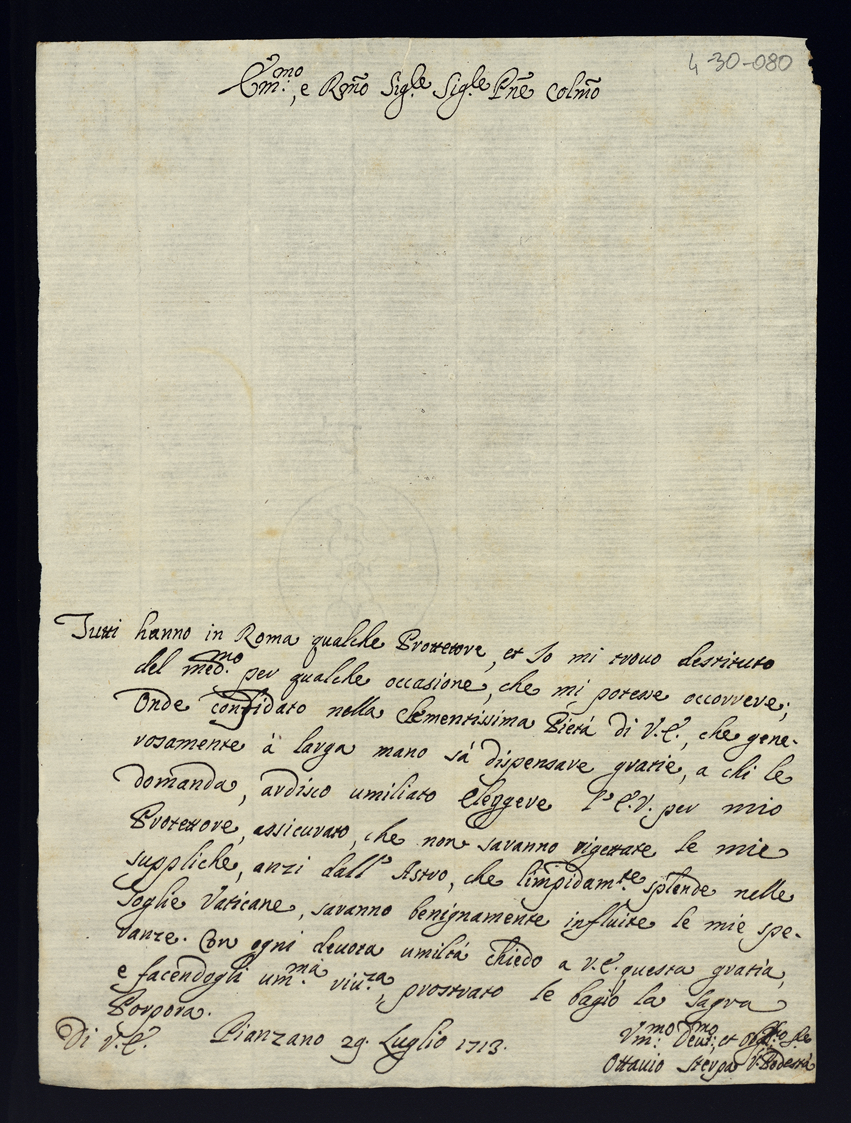 4-30-080
Em.mo, e Rmo Sig.le Sig.le Pne Colmo
Tutti hanno in Roma qualche Prottetore, et Io mi trouo destituto
del med.mo per qualche occasione, che mi potesse occorrere;
Onde confidato nella Clementissima Pietá di V.E., che gene-
rosamente à larga mano sá dispensare gratie, a chi le
domanda, ardisco umiliato Eleggere l'E.V. per mio
Protettore, assicurato, che non saranno rigettate le mie
suppliche, anzi dall'Astro, che limpidam.te splende nelle
Soglie Vaticane, saranno benignamente influite le mie spe-
ranze. Con ogni deuota umiltá chiedo a V.E. questa gratia,
e facendogli um.ma riu.za, prostrato le bagio la Sagra
Porpora.
Di V.E. Pianzano 29. Luglio 1713.
Vm.mo Deu.mo et
Ottauio Sterpa V. Podestá